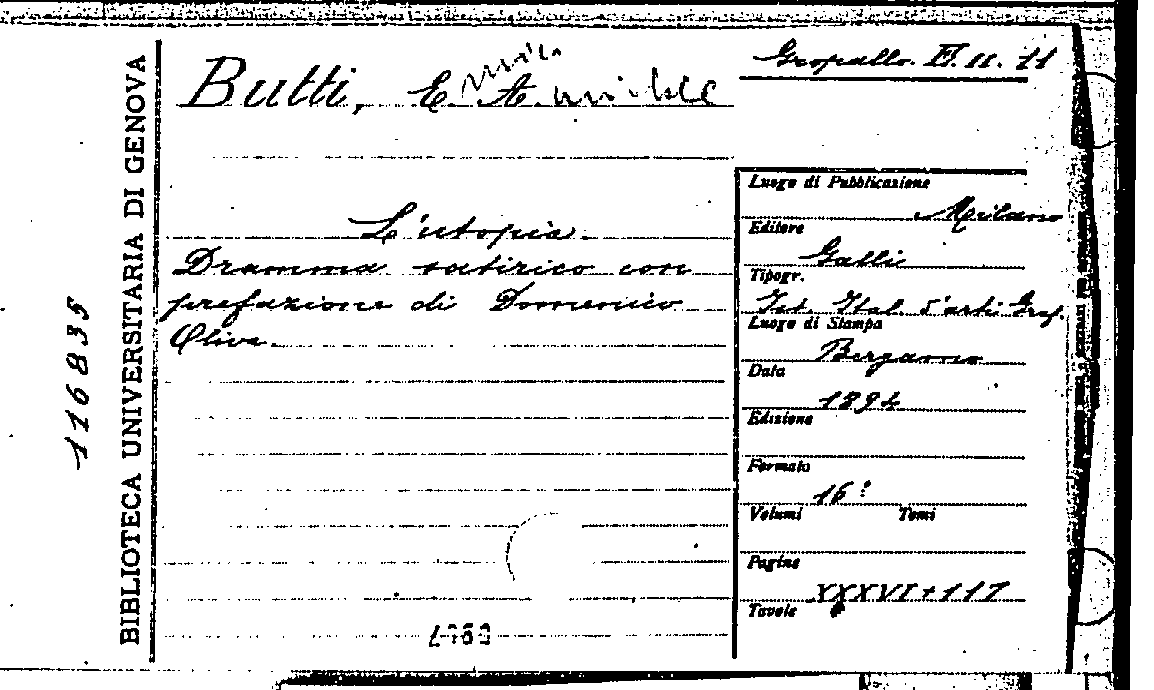 Gropallo. II. 11. 11
Butti, E. A.
L'utopia.
Dramma satirico con
prefazione di Domenico
Oliva.
Luogo di Pubblicazione
Milano
Editore
Galli
Tipogr.
Ist. Ital. d'arti Graf.
Luogo di Stampa
Bergamo
Data
1894
Edizione
Formato
16º
Volumi Tomi
Pagine
XXXVI+117
Tavole
BIBLIOTECA UNIVERSITARIA DI GENOVA
116835